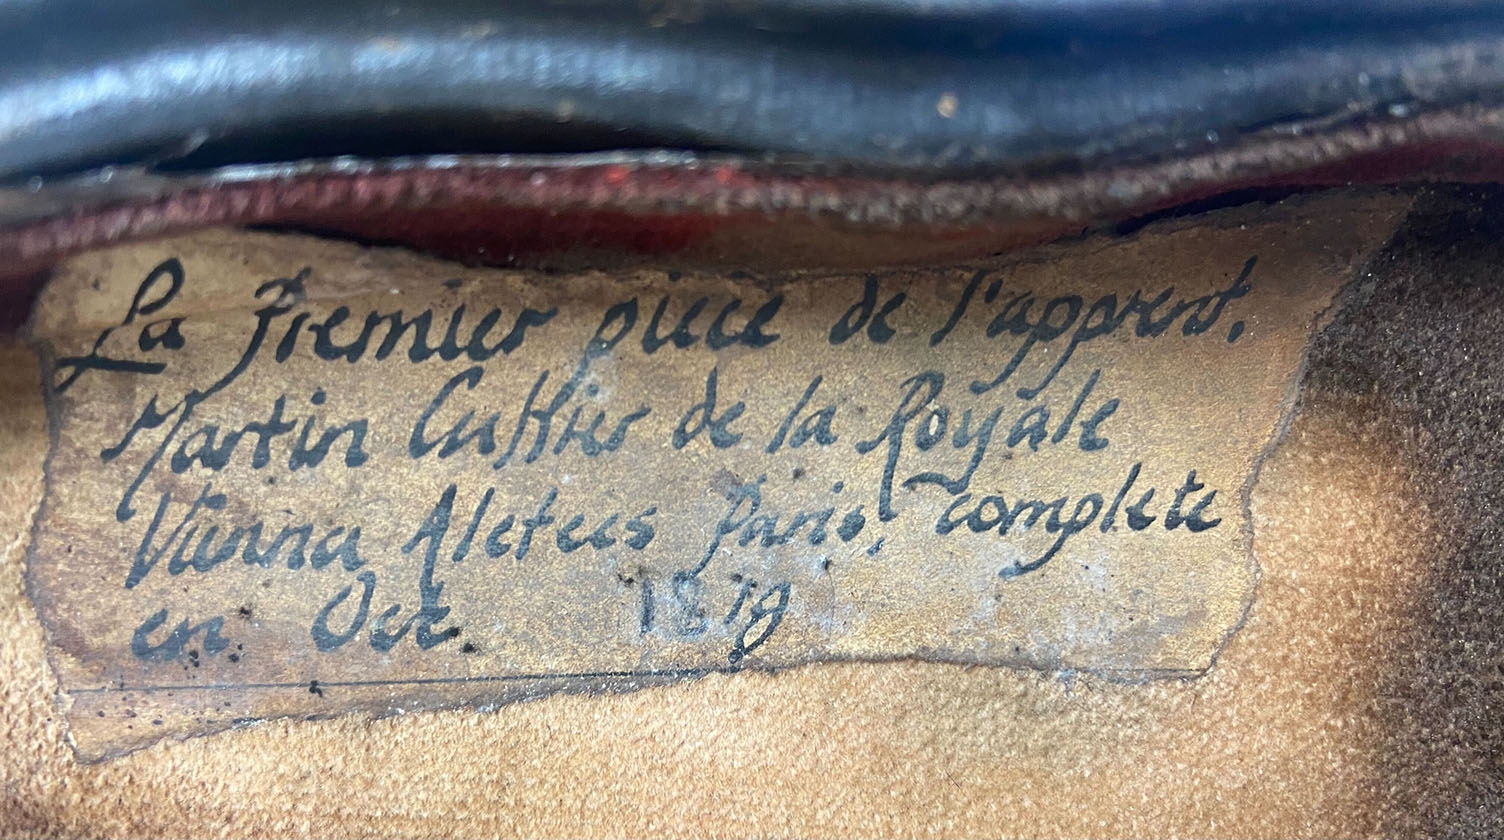 La Premier piece de l'apprent.
Martin Cuttier de la Royale
Vienna Aletees Paris, complete
en Oct. 1819